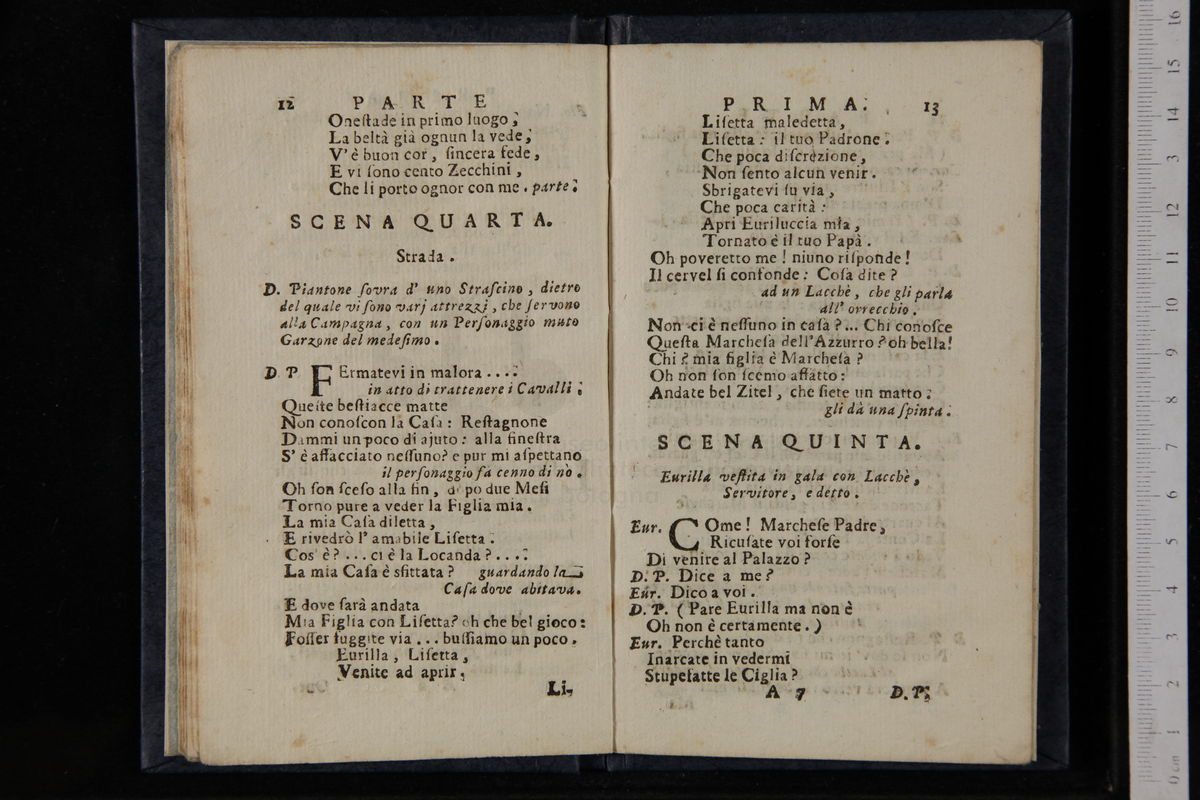 12 PARTE
Oneſtade in primo luogo,
La beltà già ognun la vede,
V' è buon cor, ſincera fede,
E vi ſono cento Zecchini,
Che li porto ognor con me. parte.
SCENA QUARTA.
Strada.
D. Piantone ſovra d' uno Straſcino, dietro
del quale vi ſono varj attrezzi, che ſervono
alla Campagna, con un Perſonaggio muto
Garzone del medeſimo.
D. P. FErmatevi in malora ....
in atto di trattenere i Cavalli.
Queſte beſtiacce matte
Non conoſcon la Caſa: Reſtagnone
Dammi un poco di ajuto: alla fineſtra
S' è affacciato neſſuno? e pur mi aſpettano
il perſonaggio fa cenno di nò.
Oh ſon ſceſo alla fin, dopo due Meſi
Torno pure a veder la Figlia mia.
La mia Caſa diletta,
E rivedrò l' amabile Liſetta.
Cos' è? ... ci è la Locanda? ....
La mia Caſa è sfittata? guardando la
Caſa dove abitava.
E dove ſarà andata
Mia Figlia con Liſetta? oh che bel gioco:
Foſſer fuggite via ... buſſiamo un poco.
Eurilla, Liſetta,
Venite ad aprir.
Li-
PRIMA. 13
Liſetta maledetta,
Liſetta: il tuo Padrone.
Che poca diſcrezione,
Non ſento alcun venir.
Sbrigatevi ſu via,
Che poca carità:
Apri Euriluccia mia,
Tornato è il tuo Papà.
Oh poveretto me! niuno riſponde!
Il cervel ſi confonde: Coſa dite?
ad un Lacchè, che gli parla
all' orrecchio.
Non ci è neſſuno in caſa?... Chi conoſce
Queſta Marcheſa dell' Azzurro? oh bella!
Chi? mia figlia è Marcheſa?
Oh non ſon ſcemo affatto:
Andate bel Zitel, che ſiete un matto.
gli dà una ſpinta.
SCENA QUINTA.
Eurilla veſtita in gala con Lacchè,
Servitore, e detto.
Eur. COme! Marcheſe Padre,
Ricuſate voi forſe
Di venire al Palazzo?
D. P. Dice a me?
Eur. Dico a voi.
D. P. (Pare Eurilla ma non è
Oh non è certamente.)
Eur. Perchè tanto
Inarcate in vedermi
Stupefatte le Ciglia?
A 7 D. P.